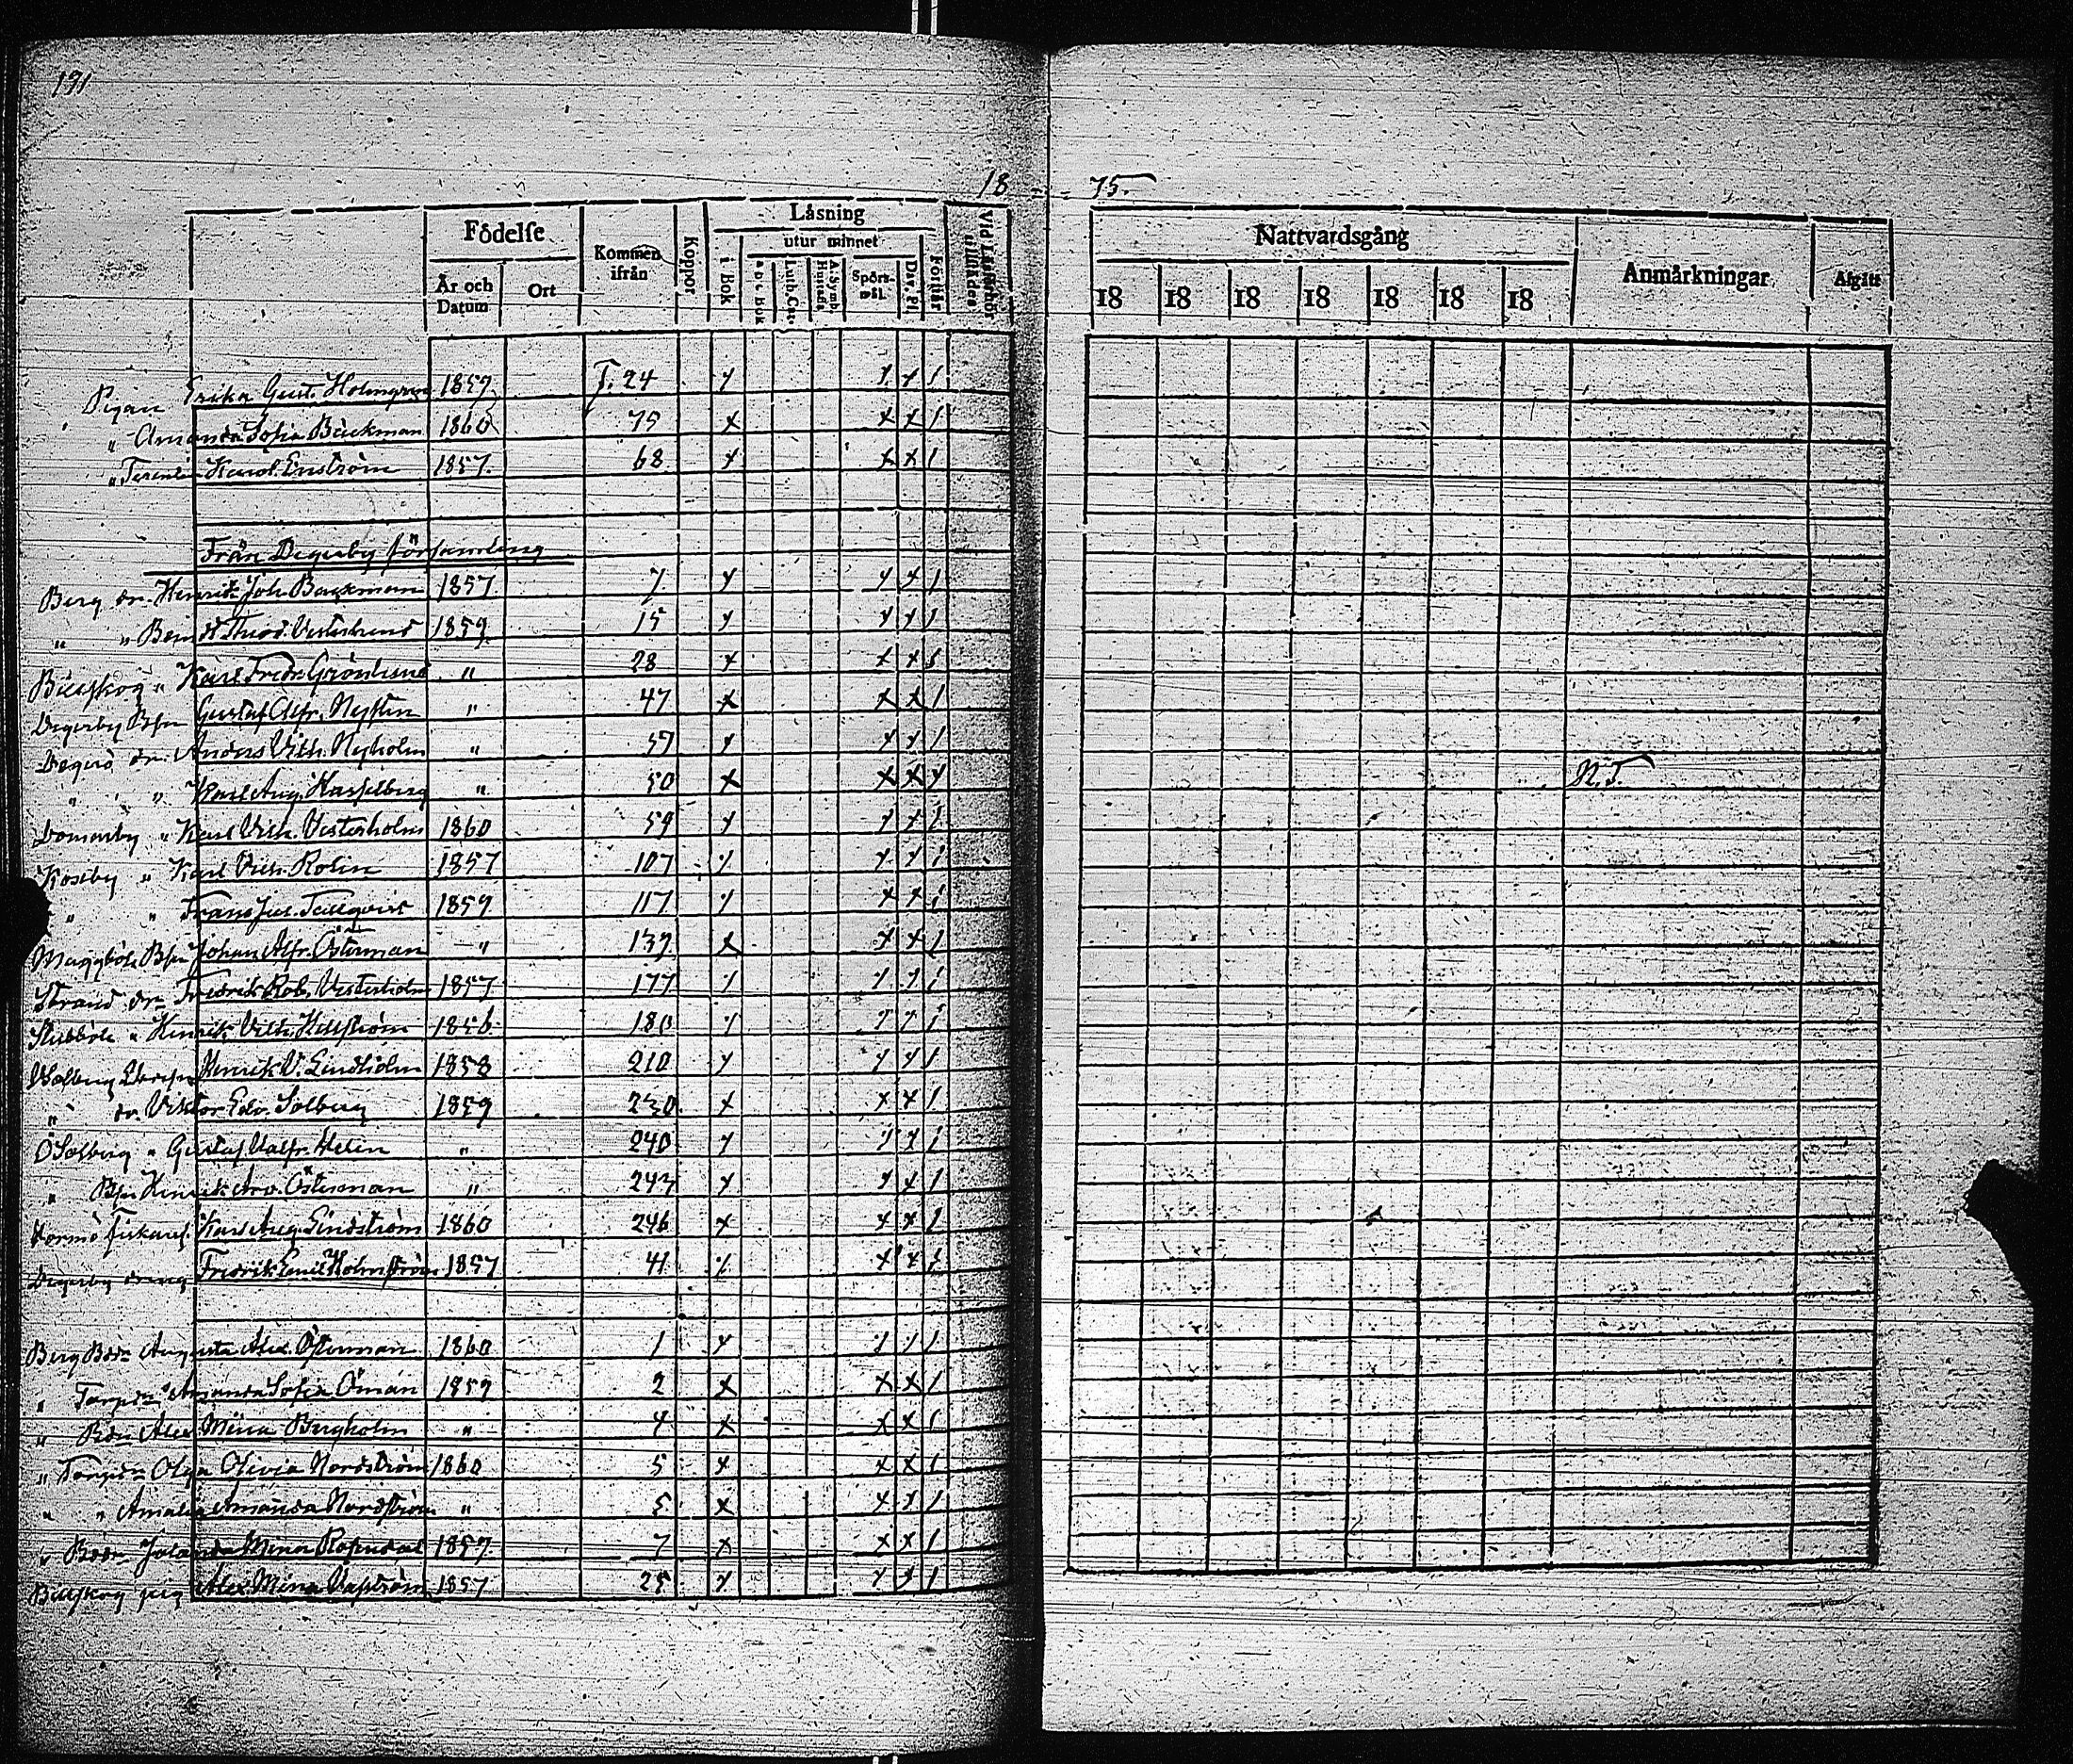 191
18 75.
Födelse
År och Datum
Ort
Kommen ifrån
Koppor
Läsning
i Bok
utur minnet
a b c Bok
Luth. Cat.
A. Symb. Hustafla
Spörsmål
Dav. Pl.
Förstår
Nattvardsgång
18 18 18 18 18 18 18
Anmärkningar
Afgått
Pigan Erika Gust. Holmgren 1859 F. 24 x x x 1
" Amanda Sofia Bäckman 1860 75 x x x 1
" Karol. Enström 1857. 68 x x x 1
Från Degerby församling
Berg dr. Henrik Joh. Backman 1857 7. x x x 1
" " Bernd Theod. Vesterlund 1859. 15 x x x 1
Büllskog " Karl Fredr. Grönlund " 28 x x x 1
Degerby Bsn Gustaf Alfr. Nystén " 47 x x x 1
Degerö dr. Anders Vilh. Nyholm " 57 x x x 1
" " Karl Aug. Hasselberg " 50 x x x x N.T.
Domarby " Karl Vilh. Vesterholm 1860 59 x x x 1
Kosby " Karl Vilh. Rolin 1857 107 x x x 1
" " Frans Jul. Tallqvist 1859 117 x x x 1
Maggböle Bsn Johan Alfr. Österman " 139 x x x 1
Strand dr. Fredrik Rob. Vesterholm 1857 177 x x x 1
Stubböle " Henrik Vilh. Hellström 1856 180 x x x 1
Henrik V. Lindholm 1858 210 x x x 1
" dr. Viktor Edv. Solberg 1859 230 x x x 1
Ö Solberg " Gustaf Valfr. Helin " 240 x x x 1
" Bsn Henrik Arv. Österman " 243 x x x 1
Karl Aug. Lindström 1860 246 x x x 1
Degerby dreng Fredrik Emil Holmström 1857 41 x x x 1
Berg Bdr. Augusta Alex. Österman 1860 1 x x x 1
" Torpdr Amanda Sofia Öman 1859 2 x x x 1
" Bdr. Alex. Mina Bergholm " 4 x x x 1
" Torpdr Olga Olivia Nordström 1860 5 x x x 1
" " Amalia Amanda Nordström " 5 x x x 1
" Bdr. Jolanda Mina Rosendal 1859. 7 x x x 1
Büllskog pig Alex. Mina Vasström 1857 25 x x x 1